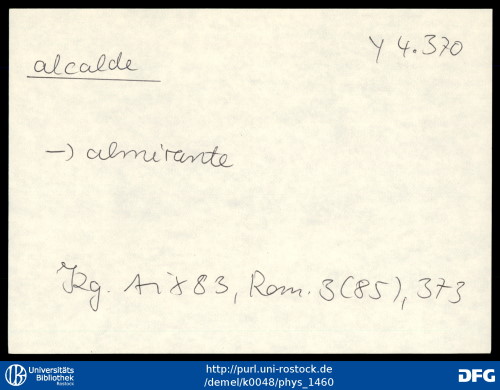 alcalde
Y 4.370
→ almirante
Kg. Aix 83, Rom. 3 (85), 373
Universitäts
Bibliothek
Rostock
http://purl.uni-rostock.de
/demel/k0048/phys_1460
DFG